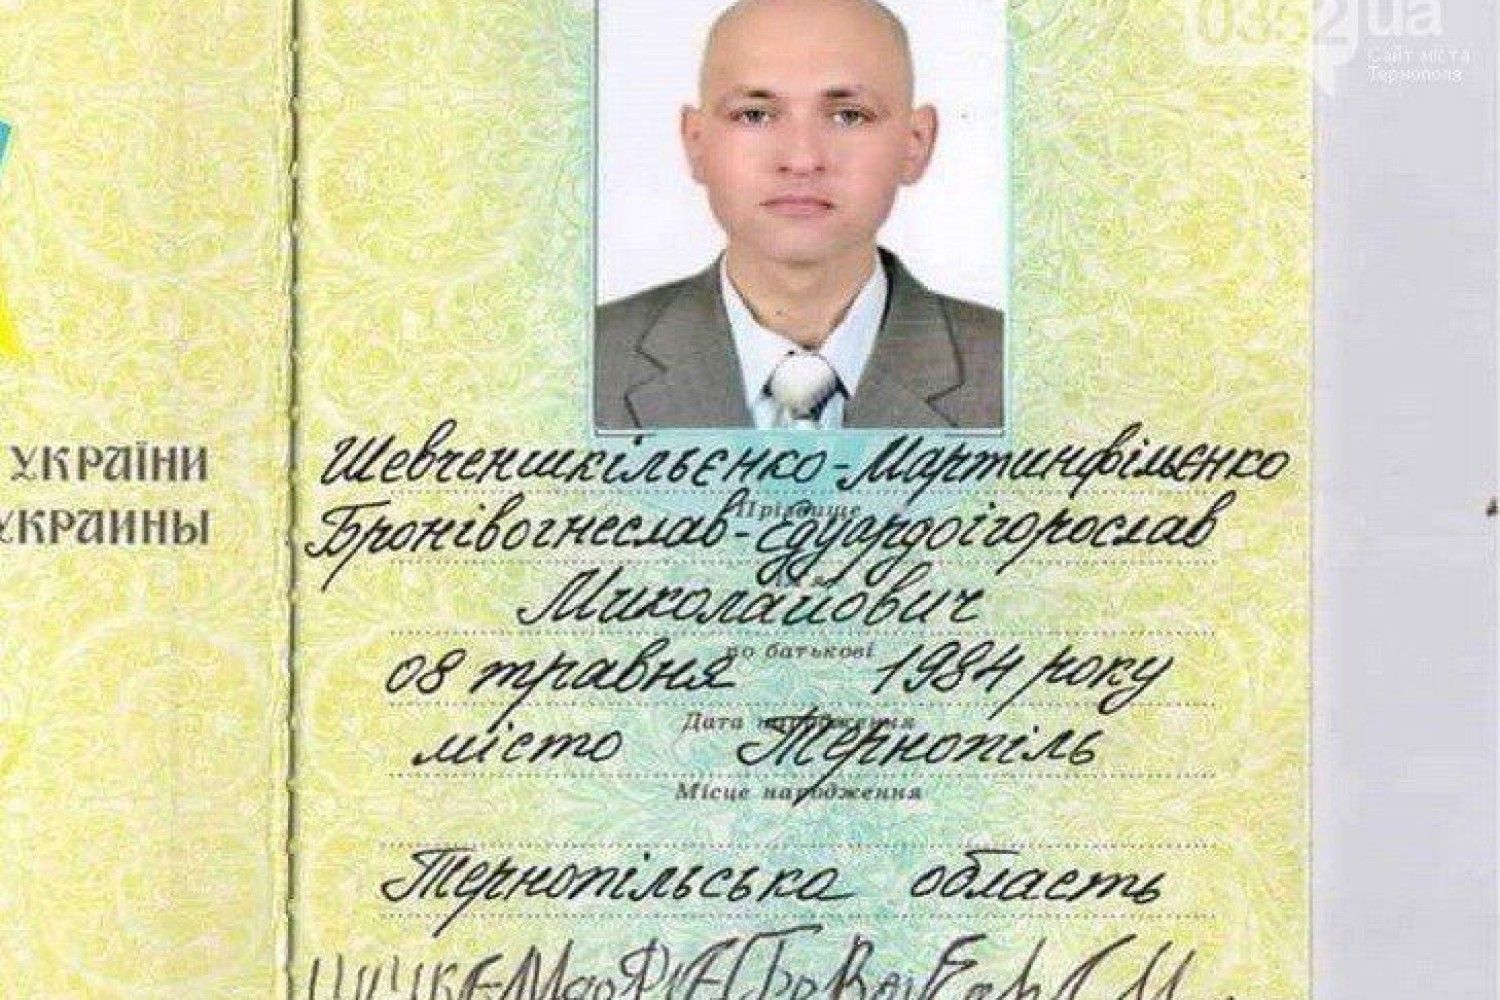 0352 ua
Сайт міста
Тернополя
УКРАЇНИ
УКРАИНЫ
Шевченшкільєнко-Мартинфільєнко
Прізвище
Бронівогнеслав-Едуардоігорослав
Миколайович
по батькові
08 травня 1984 року
Дата народження
місто Тернопіль
Місце народження
Тернопільська область